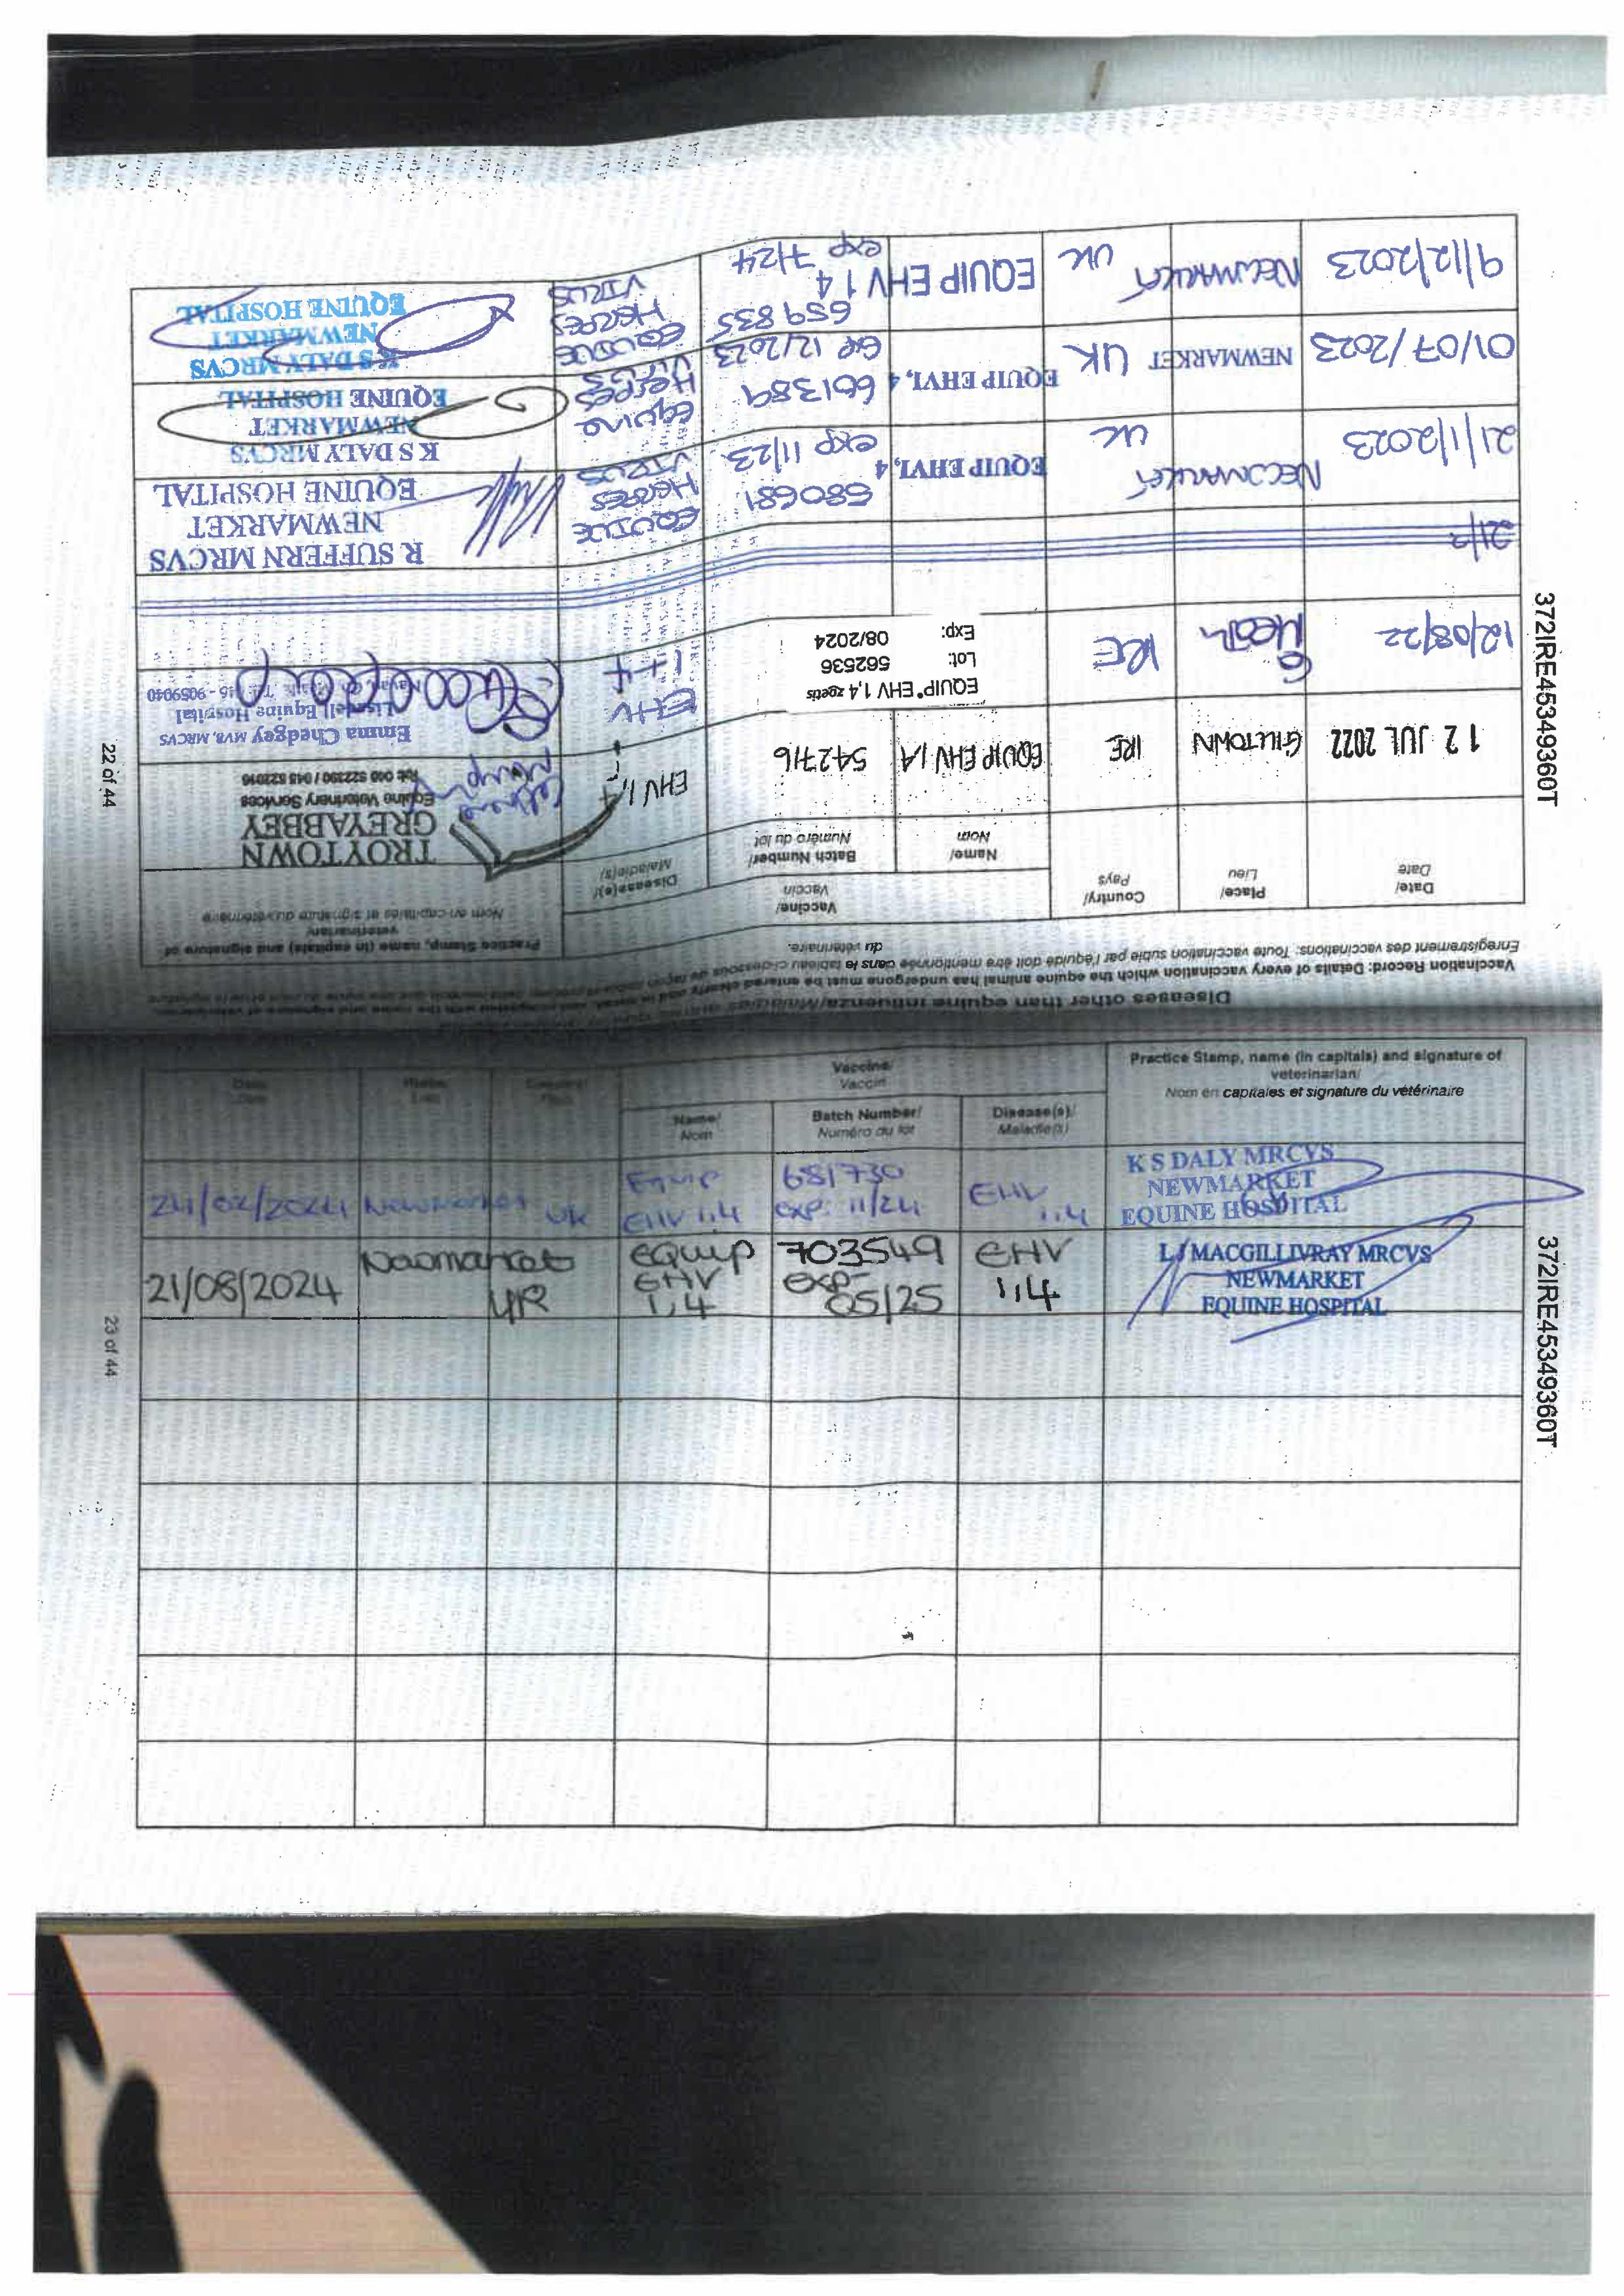 Diseases other than equine influenza/
Vaccination Record: Details of every vaccination which the equine animal has undergone must be entered clearly and in
Enregistrement des vaccinations: Toute vaccination subie par l'équidé doit être mentionnée dans le tableau ci-dessous de façon
du vétérinaire.
Date/ Place/ Country/ Vaccine/ Practice Stamp, name (in capitals) and signature of
Date Lieu Pays Vaccin veterinarian/
Nom en capitales et signature du vétérinaire
Name/ Batch Number/ Disease(s)/
Nom Numéro du lot Maladie(s)
12 JUL 2022 GILLTOWN IRE EQUIP EHV 1,4 542716 EHV 1,4
TROYTOWN
GREYABBEY
Equine Veterinary Services
12/08/22 Co Meath IRE
EQUIP® EHV 1,4 zoetis
Lot: 562536
Exp: 08/2024
EHV
1+4
Emma Chedgey MVB, MRCVS
Equine Hospital
Navan, Co. Meath.
21/2
21/1/2023 NEWMARKET UK EQUIP EHV1,4 580681
exp 11/23
EQUINE
HERPES
VIRUS
R SUFFERN MRCVS
NEWMARKET
EQUINE HOSPITAL
01/07/2023 NEWMARKET UK EQUIP EHV1,4 601389
exp 12/2023
Equine
Herpes
Virus
K S DALY MRCVS
NEWMARKET
EQUINE HOSPITAL
9/12/2023 NEWMARKET UK EQUIP EHV 1 4 659835
exp 7/24
EQUINE
HERPES
VIRUS
K S DALY MRCVS
NEWMARKET
EQUINE HOSPITAL
22 of 44
372IRE45349360T
Vaccine/ Practice Stamp, name (in capitals) and signature of
Vaccin veterinarian/
Nom en capitales et signature du vétérinaire
Name/ Batch Number/ Disease(s)/
Nom Numéro du lot Maladie(s)
24/02/2024 Newmarket UK Equip
EHV 1,4
681730
exp: 11/24
EHV
1,4
K S DALY MRCVS
NEWMARKET
EQUINE HOSPITAL
21/08/2024 Newmarket
UK
equip
EHV
1,4
703549
exp-
05/25
EHV
1,4
L J MACGILLIVRAY MRCVS
NEWMARKET
EQUINE HOSPITAL
23 of 44
372IRE45349360T